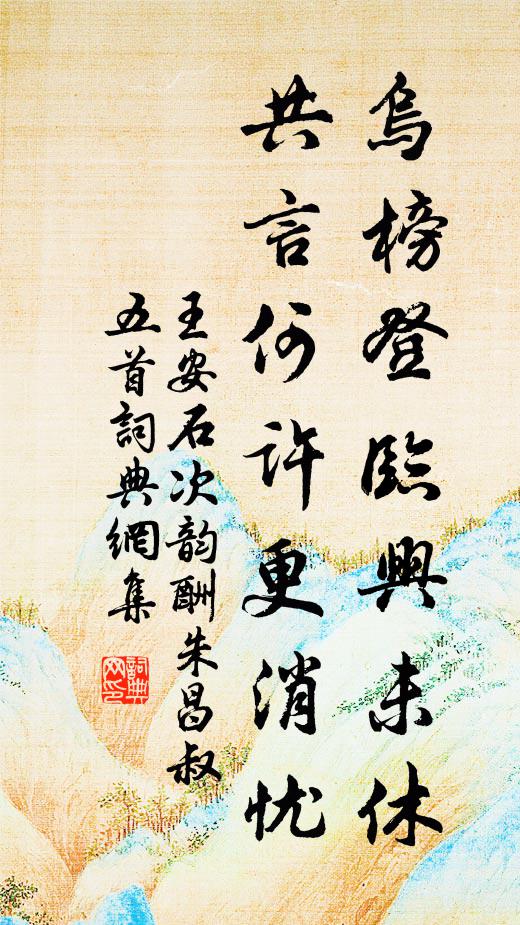 烏榜登臨興未休
共言何許更消忧
王安石次韵酬朱昌叔
五首詞典網集
詞典網印